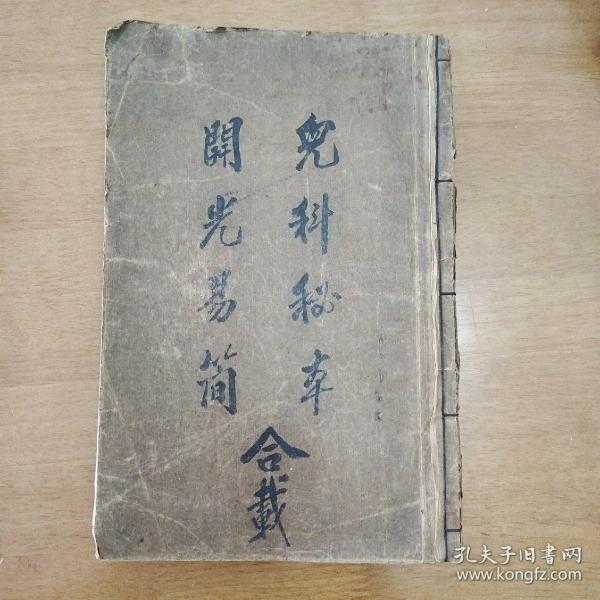 兒科秘本
開光易簡
合載
孔夫子旧書网
www.kongfz.com